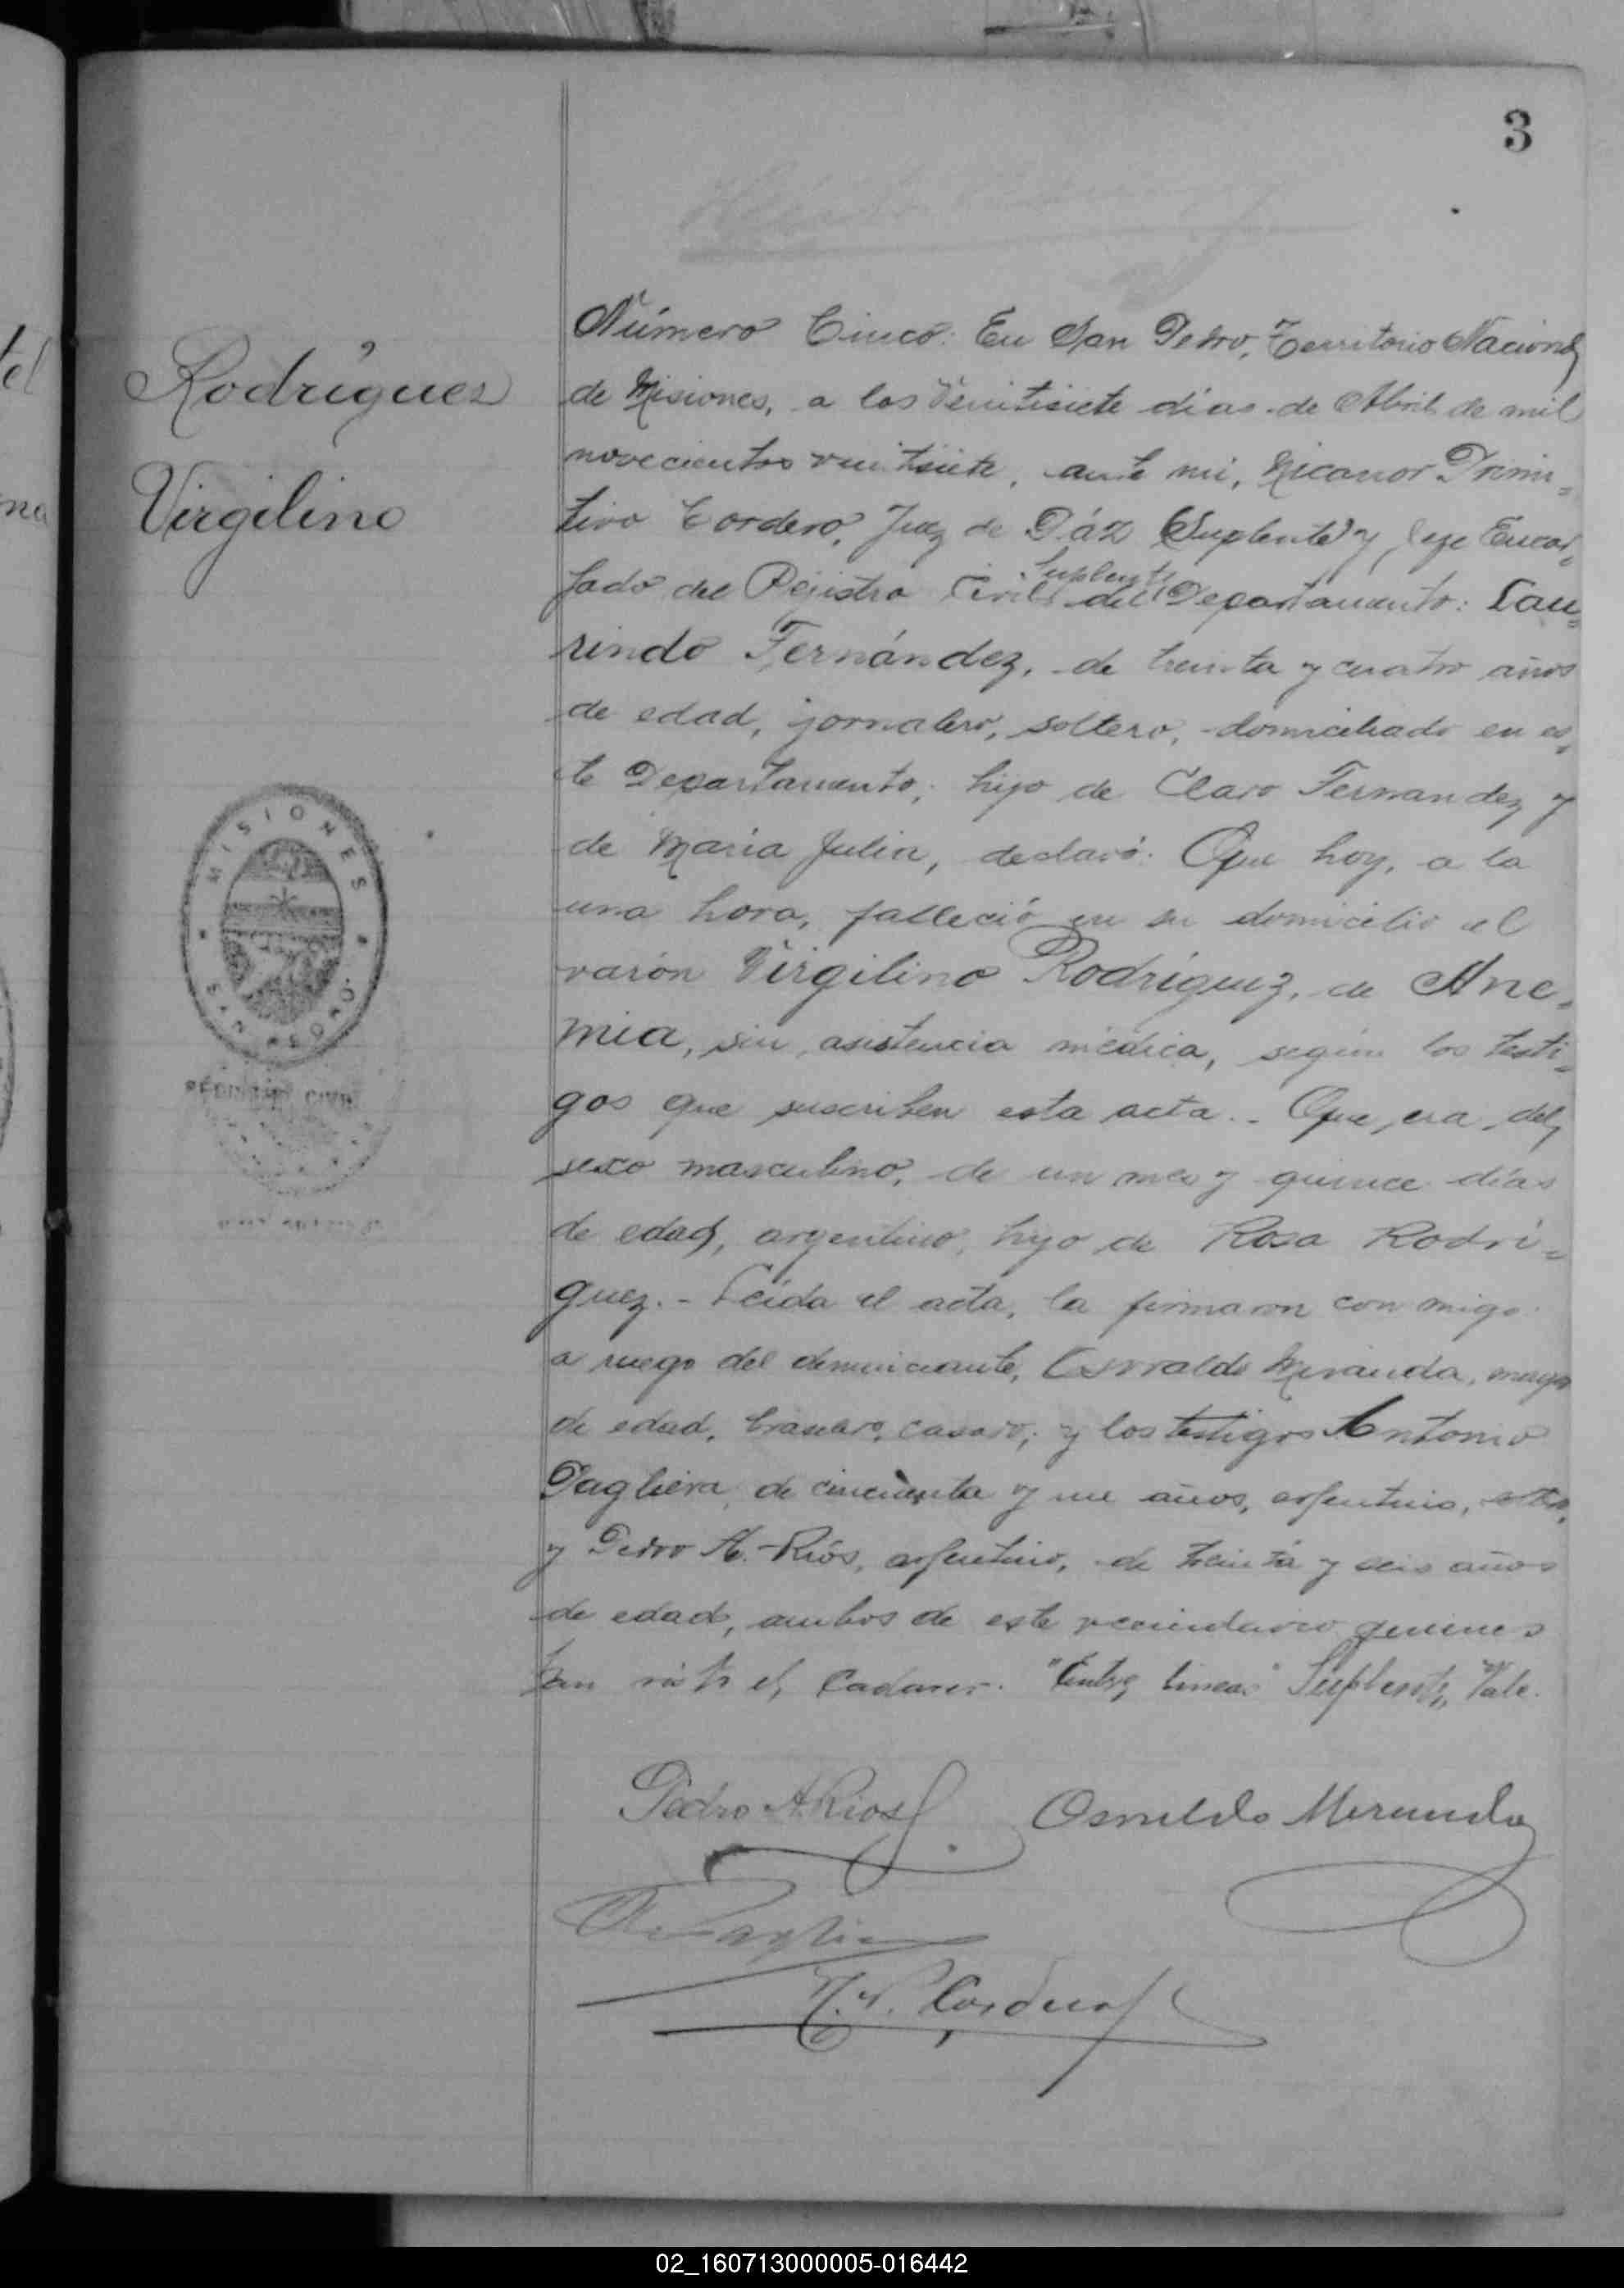 3
Rodríguez
Virgilino
Número Cinco: En San Pedro, Territorio Nacional
de Misiones, a los veintisiete días de Abril de mil
novecientos veintisiete, ante mi, Nicanor Primi=
tivo Cordero, Juez de Páz Suplente y Jefe Encar=
gado del Rejistro Civil Suplente del Departamento: Lau=
rindo Fernández, de treinta y cuatro años
de edad, jornalero, soltero, domiciliado en es=
te Departamento, hijo de Claro Fernandez y
de Maria Julia, declaró: Que hoy, a la
una hora, falleció en su domicilio el
varón Virgilino Rodríguez, de Ane=
mia, sin asistencia médica, según los testi=
gos que suscriben esta acta.- Que era del
sexo masculino, de un mes y quince días
de edad, argentino, hijo de Rosa Rodrí=
guez.- Leída el acta, la firmaron con migo
a ruego del denunciante, Osvaldo Miranda, mayor
de edad, casado; y los testigos Antonio
Pagliera, de cincuenta y un años, argentino,
y Pedro A. Ríos, argentino, de treinta y seis años
de edad, ambos de este vecindario quienes
han visto el Cadaver. "Entre lineas" Suplente, Vale.
Pedro A Rios
Osvaldo Miranda
N. P. Cordero
MISIONES
SAN PEDRO
REGISTRO CIVIL
02_160713000005-016442